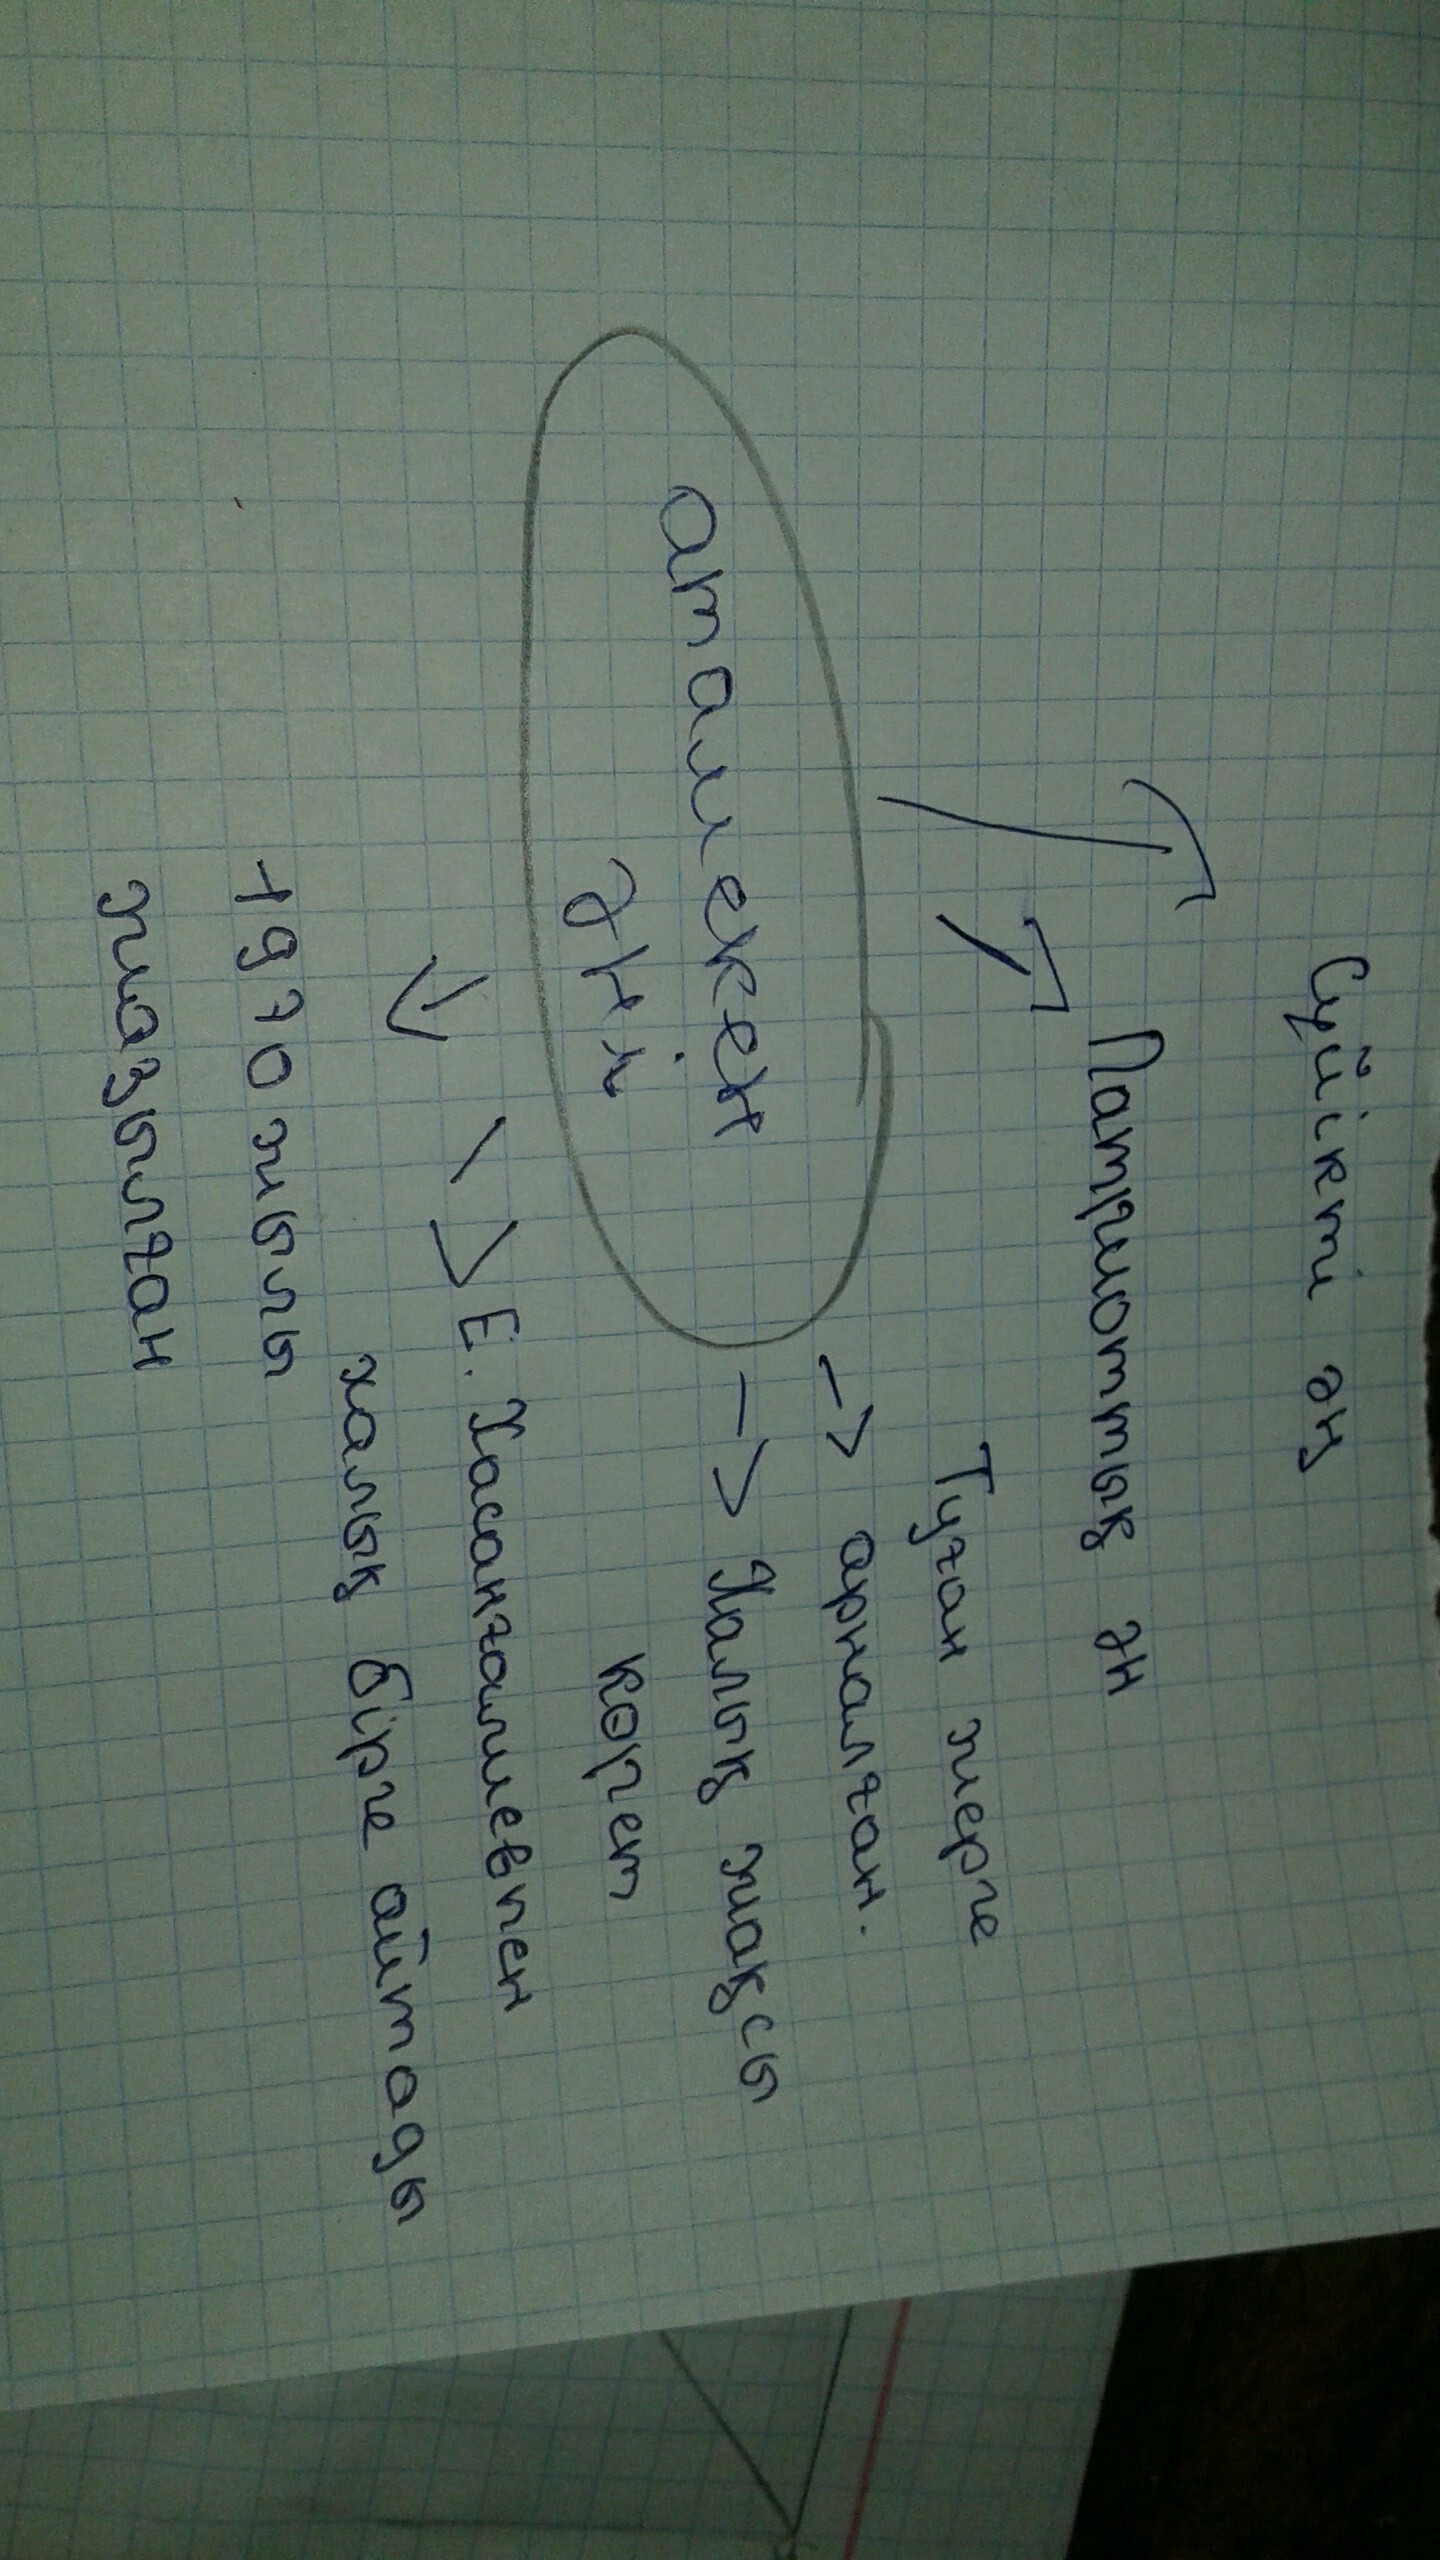 Сүйікті ән
Патриоттық ән
Туған жерге
арналған.
Халық жақсы
көрет
атамекен
әні
Е. Хасанғалиевпен
халық бірге айтады
1970 жылы
жазылған